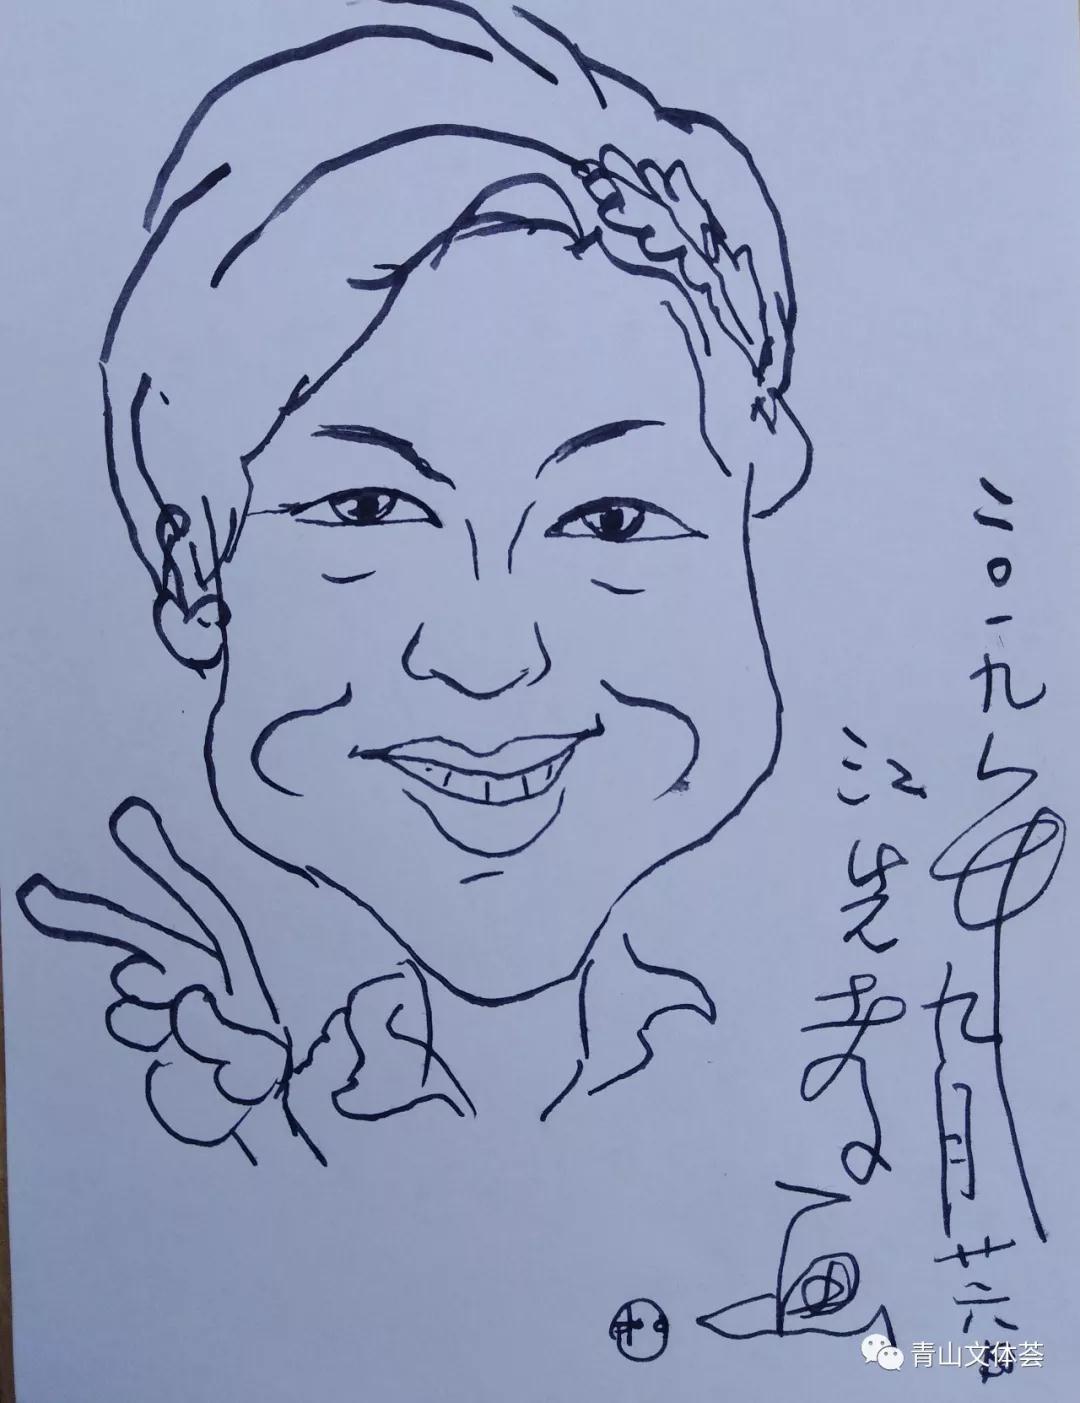 二〇一九年九月廿六
江先孝
画
青山文体荟